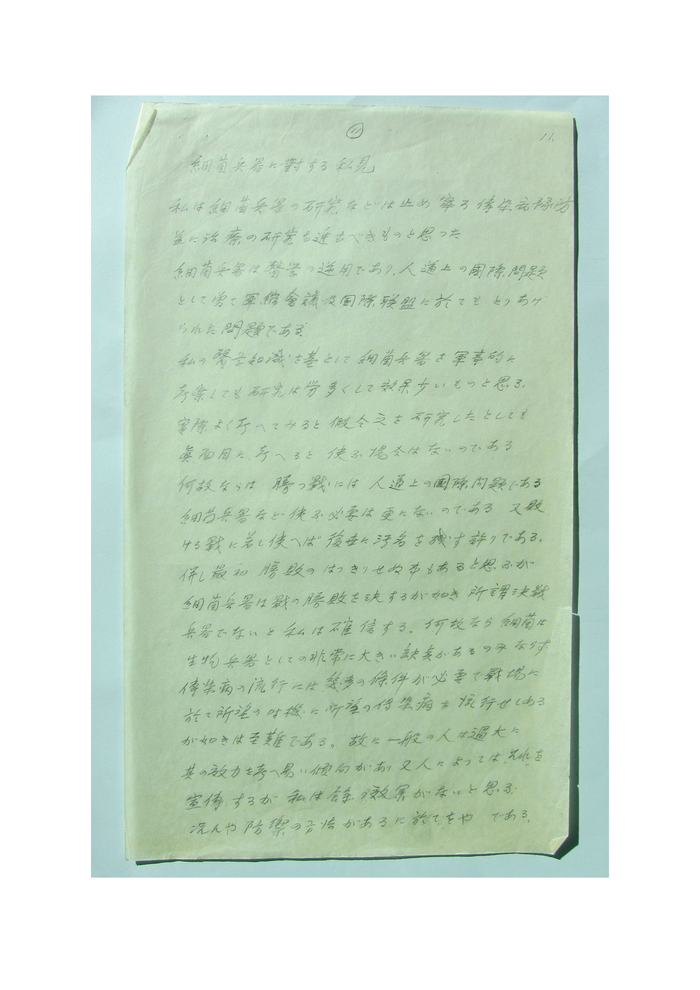 11
11.
細菌兵器に對する私見
私は細菌兵器の研究などは止め寧ろ傳染病豫防
並に治療の研究を進むべきものと思つた
細菌兵器は醫學の逆用であり、人道上の國際問題
として嘗て軍縮會議及国際联盟に於てもとりあげ
られた問題である
私の醫學知識を基として細菌兵器を軍事的に
考案しても研究は労多くして效果少いものと思ふ。
実際よく考へてみると假令之を研究したとしても
眞面目に考へると使ふ場合はないのである
何故ならは勝つ戰には人道上の國際問題である
細菌兵器など使ふ必要は更にないのである 又敗
ける戰に若し使へば後世に汚名を残す許りである。
併し最初勝敗のはつきりせぬ事もあると思ふが
細菌兵器は戰の勝敗を決するが如き所謂決戰
兵器でないと私は確信する。何故なら細菌は
生物兵器としての非常に大きい缺点があるのみならず
傳染病の流行には幾多の條件が必要で戰場に
於て所望の時機に所望の傳染病を流行せしめる
が如きは至難である。故に一般の人は過大に
其の效力を考へ易い傾向があり又人によつてはそれを
宣傳するが私は余り效果がないと思ふ
况んや防禦の方法があるに於てをやである。